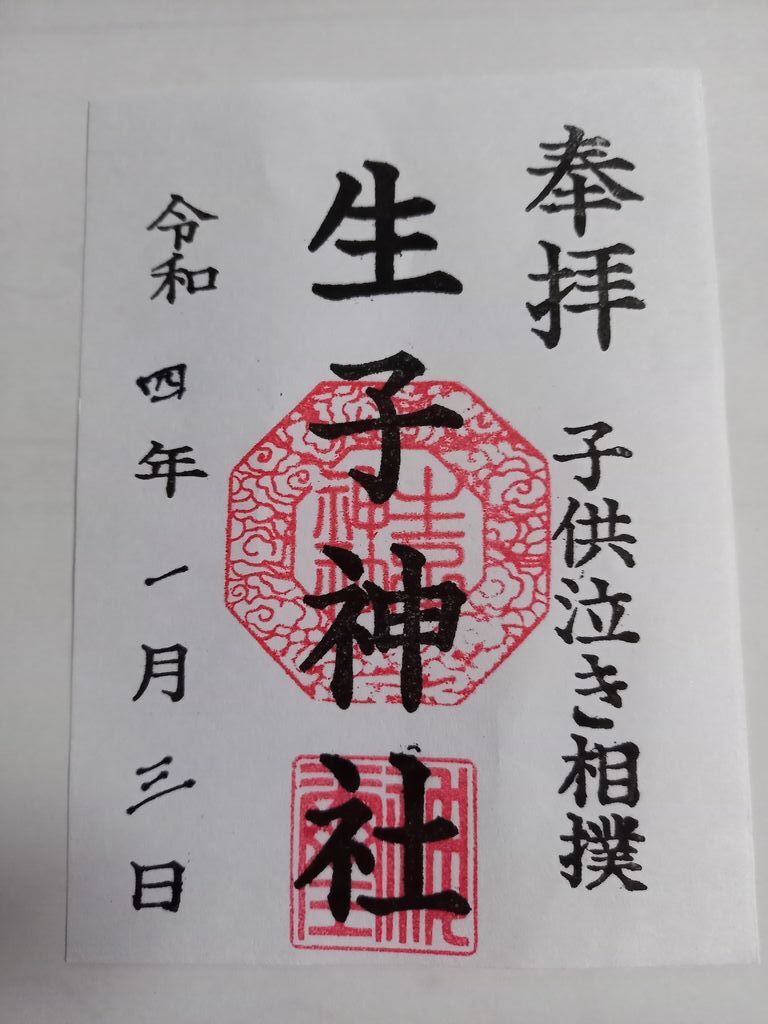 奉拝 子供泣き相撲
生子神社
令和四年一月三日